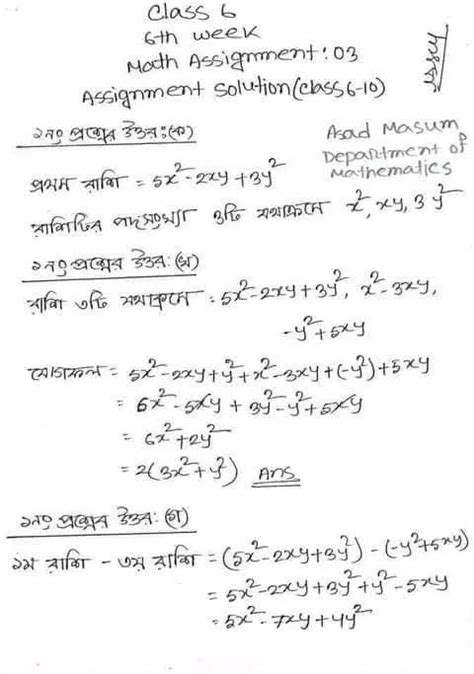 Class 6
6th week
Math Assignment: 03
Assignment solution (class 6-10)
Asad Masum
Department of
Mathematics
১নং প্রশ্নের উত্তর: (ক)
প্রথম রাশি = 5x²-2xy+3y²
রাশিটির পদসংখ্যা ৩টি যথাক্রমে x², xy, 3y²
১নং প্রশ্নের উত্তর: (খ)
রাশি ৩টি যথাক্রমে: 5x²-2xy+3y², x²-3xy,
-y²+5xy
যোগফল = 5x²-2xy+y²+x²-3xy+(-y²)+5xy
= 6x²-5xy+3y²-y²+5xy
= 6x²+2y²
= 2(3x²+y²) Ans
১নং প্রশ্নের উত্তর: (গ)
১ম রাশি - ৩য় রাশি = (5x²-2xy+3y²)-(-y²+5xy)
= 5x²-2xy+3y²+y²-5xy
= 5x²-7xy+4y²